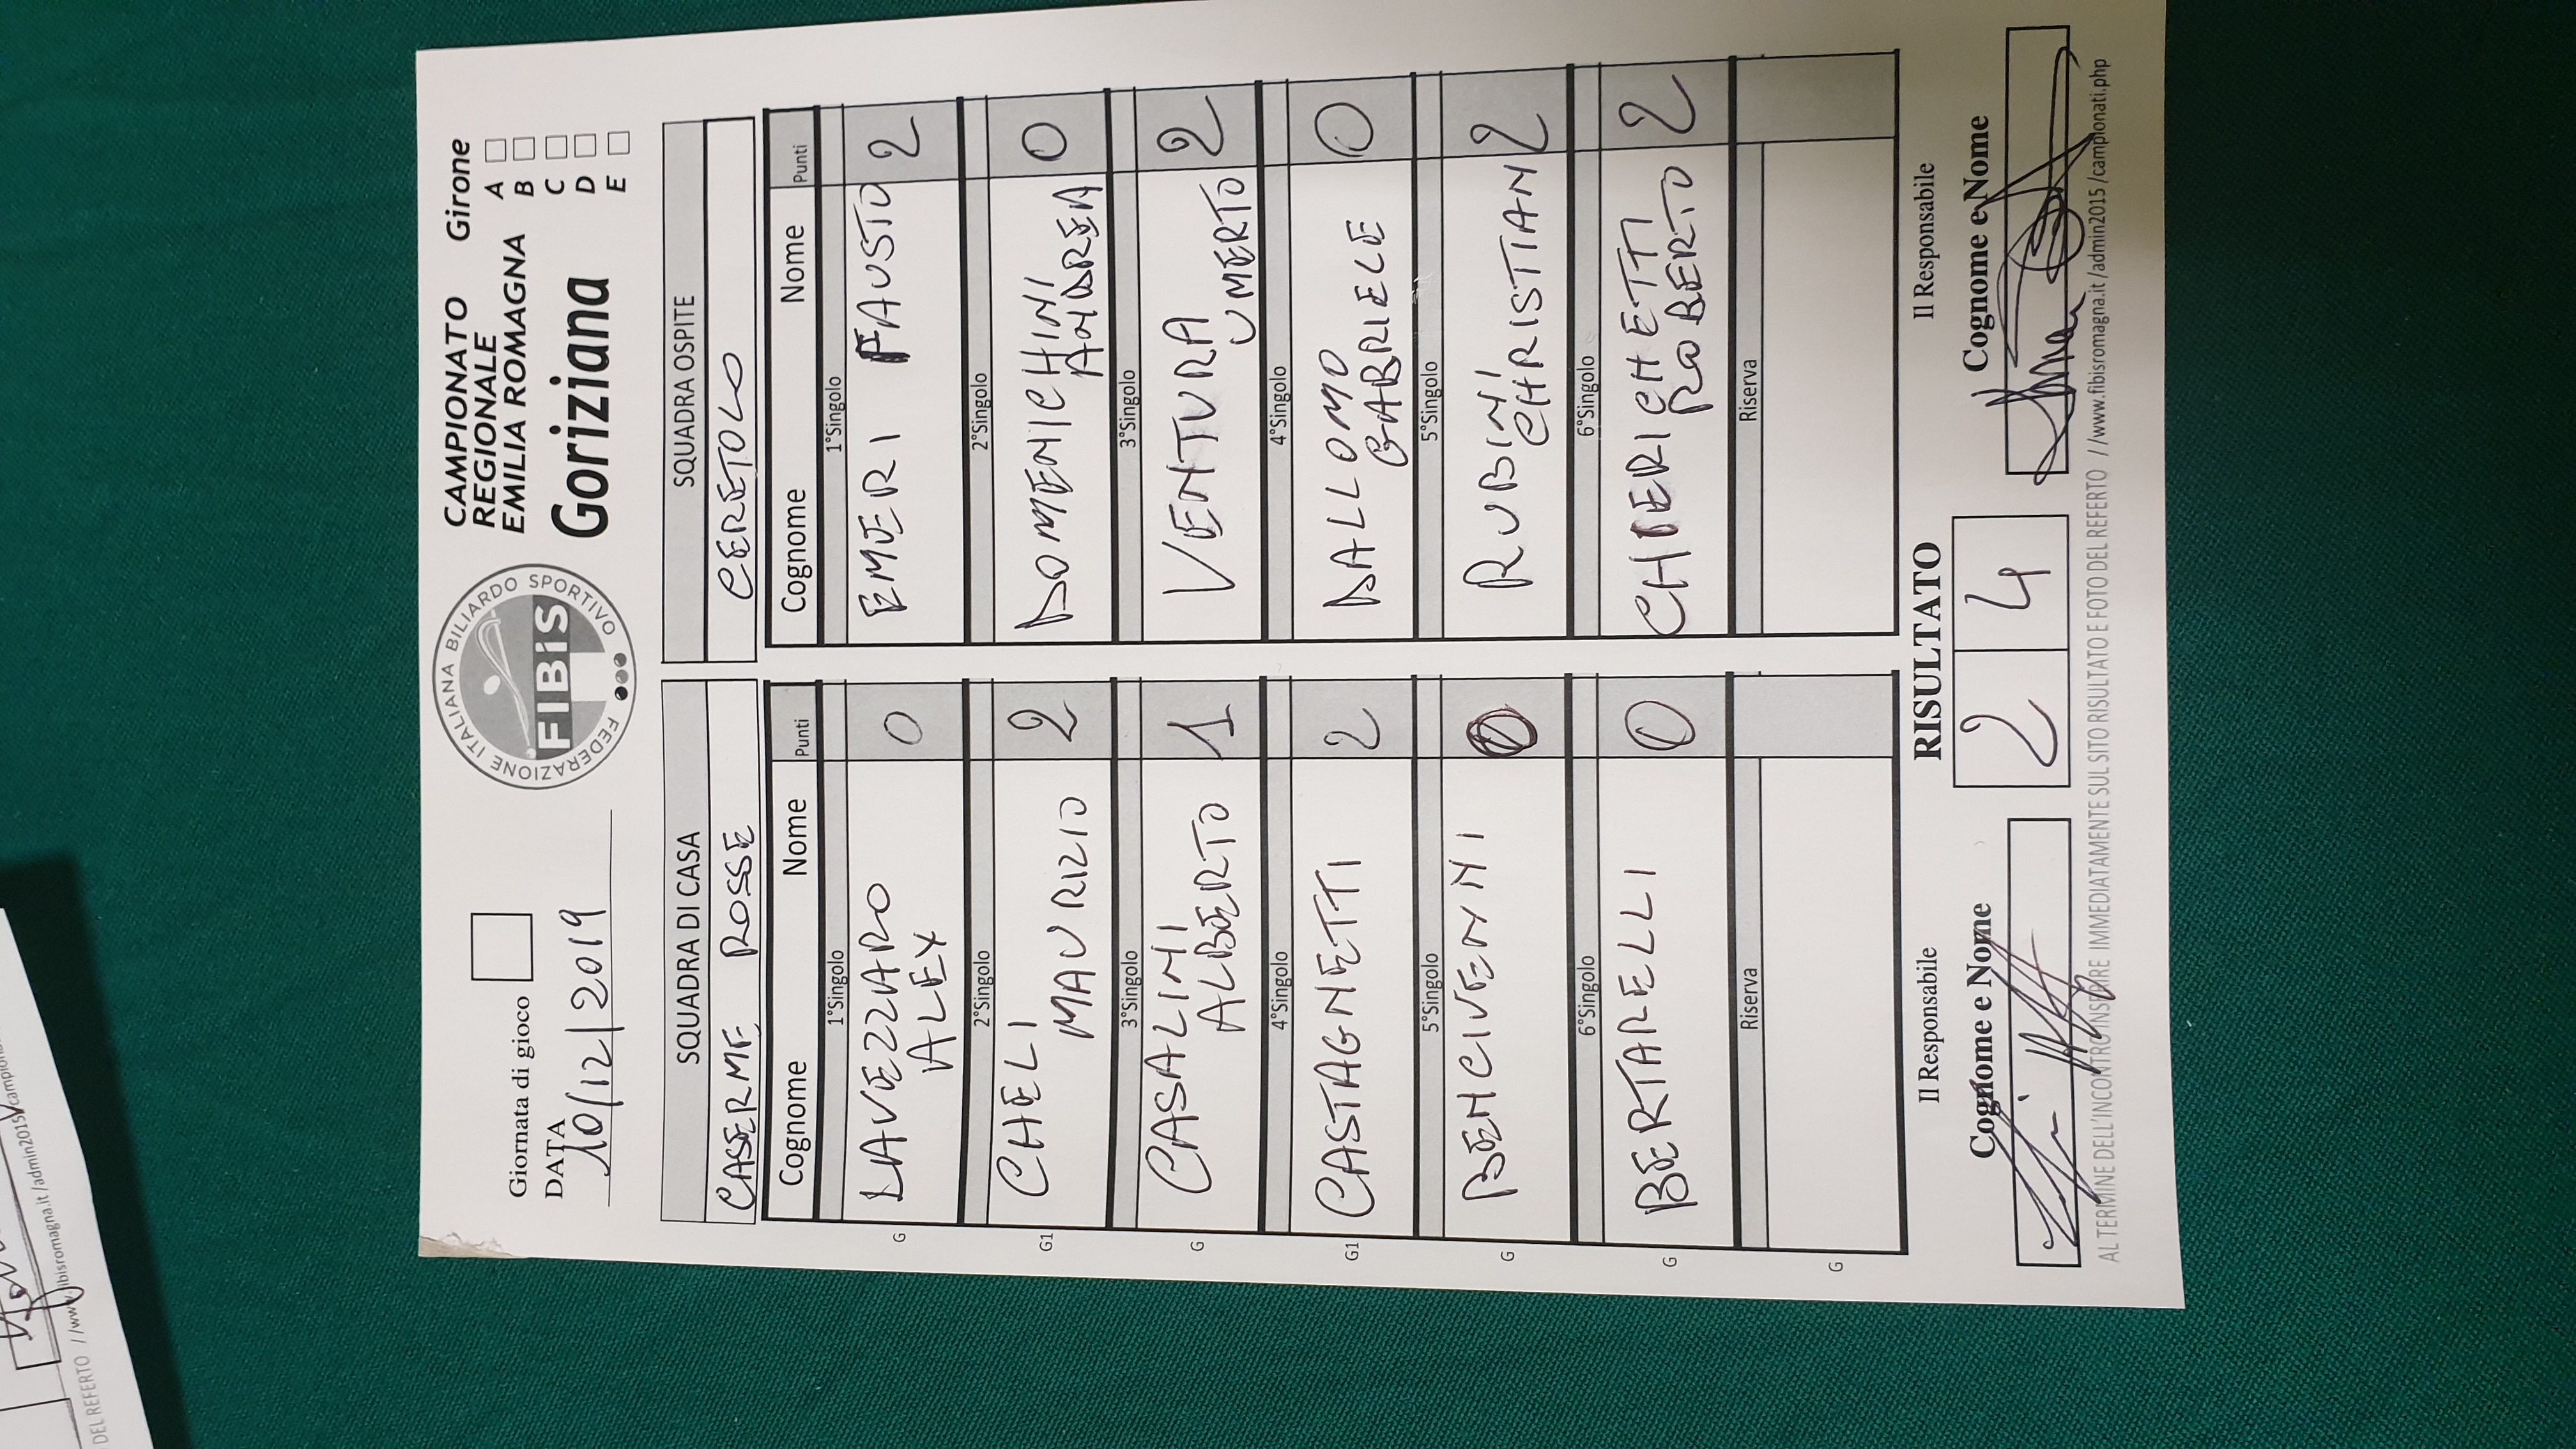 Giornata di gioco
DATA
10/12/2019
FEDERAZIONE ITALIANA BILIARDO SPORTIVO
FIBiS
CAMPIONATO
REGIONALE
EMILIA ROMAGNA
Goriziana
Girone
A
B
C
D
E
SQUADRA DI CASA
CASERME ROSSE
Cognome Nome Punti
1°Singolo
G LAVEZZARO ALEX 0
2°Singolo
G1 CHELI MAURIZIO 2
3°Singolo
G CASALINI ALBERTO 1
4°Singolo
G1 CASTAGNETTI 2
5°Singolo
G BENCIVENNI 0
6°Singolo
G BERTARELLI 0
Riserva
G
SQUADRA OSPITE
CERETOLO
Cognome Nome Punti
1°Singolo
EMUERI FAUSTO 2
2°Singolo
DOMENICHINI ANDREA 0
3°Singolo
VENTURA UMERTO 2
4°Singolo
DALLOMO GABRIELE 0
5°Singolo
RUBINI CHRISTIAN 2
6°Singolo
CHIERICHETTI ROBERTO 2
Riserva
Il Responsabile
Cognome e Nome
RISULTATO
2 4
Il Responsabile
Cognome e Nome
AL TERMINE DELL'INCONTRO INSERIRE IMMEDIATAMENTE SUL SITO RISULTATO E FOTO DEL REFERTO //www.fibisromagna.it/admin2015/campionati.php
DEL REFERTO //www.fibisromagna.it/admin2015/campion